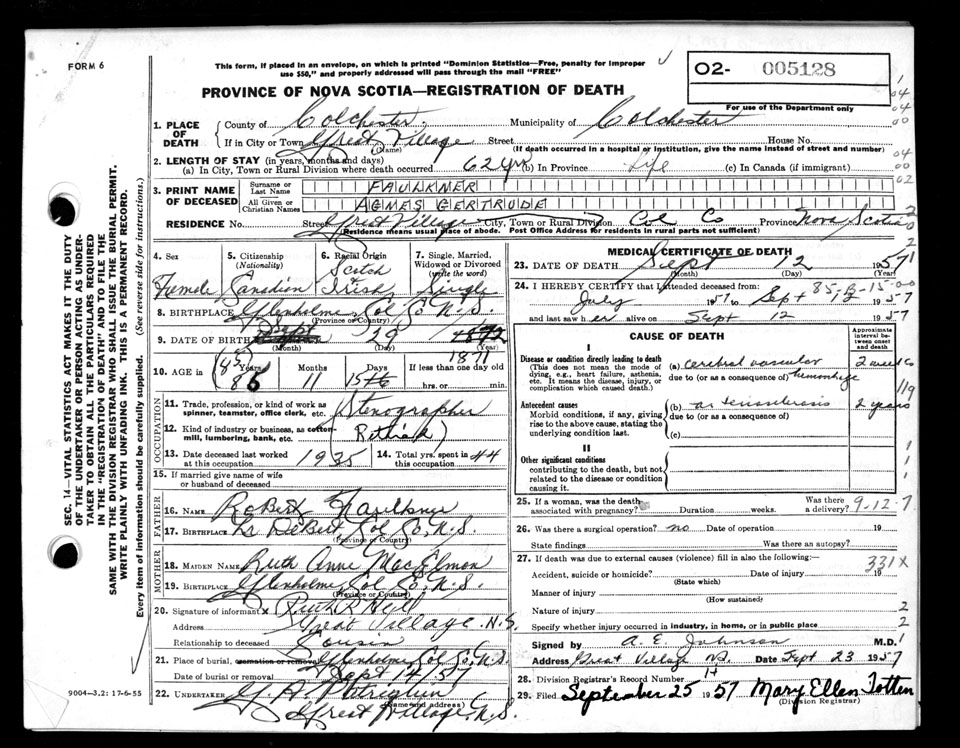 FORM 6
This form, if placed in an envelope, on which is printed "Dominion Statistics—Free, penalty for improper
use $50," and properly addressed will pass through the mail "FREE"
O2- 005128
For use of the Department only
PROVINCE OF NOVA SCOTIA—REGISTRATION OF DEATH
1. PLACE OF DEATH County of Colchester Municipality of Colchester
If in City or Town Great Village Street House No.
(Name) (If death occurred in a hospital or institution, give the name instead of street and number)
2. LENGTH OF STAY (in years, months and days)
(a) In City, Town or Rural Division where death occurred 62 yrs (b) In Province Life (c) In Canada (if immigrant)
3. PRINT NAME OF DECEASED Surname or Last Name FAULKNER
All Given or Christian Names AGNES GERTRUDE
RESIDENCE No. Street Great Village City, Town or Rural Division Col Co Province Nova Scotia
(Residence means usual place of abode. Post Office Address for residents in rural parts not sufficient)
4. Sex Female
5. Citizenship (Nationality) Canadian
6. Racial Origin Scotch & Irish
7. Single, Married, Widowed or Divorced (write the word) Single
8. BIRTHPLACE Glenholme, Col Co N.S.
(Province or Country)
9. DATE OF BIRTH Sept 29 1872
(Month) (Day) (Year)
1871
10. AGE in (85) Years 86 Months 11 Days 15 If less than one day old hrs. or min.
OCCUPATION
11. Trade, profession, or kind of work as spinner, teamster, office clerk, etc. Stenographer
12. Kind of industry or business, as cotton-mill, lumbering, bank, etc. (Retired)
13. Date deceased last worked at this occupation 1935
14. Total yrs. spent in this occupation 44
15. If married give name of wife or husband of deceased
FATHER
16. NAME Robert Faulkner
17. BIRTHPLACE DeBert Col Co, N.S.
(Province or Country)
MOTHER
18. MAIDEN NAME Ruth Anne MacElmon
19. BIRTHPLACE Glenholme, Col Co, N.S.
(Province or Country)
20. Signature of informant X Ruth R Hill
Address Great Village N.S.
Relationship to deceased Cousin
21. Place of burial, cremation or removal Glenholme, Col Co, N.S.
Date of burial or removal Sept 14/57
22. UNDERTAKER
(Name and address)
Great Village, N.S.
9004-3.2: 17-6-55
MEDICAL CERTIFICATE OF DEATH
23. DATE OF DEATH Sept 12 1957
(Month) (Day) (Year)
24. I HEREBY CERTIFY that I attended deceased from: 85-B-15-00
July 1957 to Sept 12 1957
and last saw her alive on Sept 12 1957
CAUSE OF DEATH
Approximate interval between onset and death
I
Disease or condition directly leading to death
(This does not mean the mode of dying, e.g., heart failure, asthenia, etc. It means the disease, injury, or complication which caused death.)
(a) cerebral vascular 2 weeks
due to (or as a consequence of) hemorrhage
Antecedent causes
Morbid conditions, if any, giving rise to the above cause, stating the underlying condition last.
(b) arteriosclerosis 2 years
due to (or as a consequence of)
(c)
II
Other significant conditions contributing to the death, but not related to the disease or condition causing it.
25. If a woman, was the death associated with pregnancy? Duration weeks. Was there a delivery? 9-12-7
26. Was there a surgical operation? no Date of operation 19
State findings Was there an autopsy?
27. If death was due to external causes (violence) fill in also the following: 331X
Accident, suicide or homicide? Date of injury 19
(State which)
Manner of injury
(How sustained)
Nature of injury
Specify whether injury occurred in industry, in home, or in public place
Signed by A. E. Johnson M.D.
Address Great Village NS. Date Sept 23 1957
28. Division Registrar's Record Number 14
29. Filed September 25 1957 Mary Ellen Totten
(Division Registrar)
SEC. 14—VITAL STATISTICS ACT MAKES IT THE DUTY
OF THE UNDERTAKER OR PERSON ACTING AS UNDER-
TAKER TO OBTAIN ALL THE PARTICULARS REQUIRED
IN THE "REGISTRATION OF DEATH" AND TO FILE THE
SAME WITH THE DIVISION REGISTRAR WHO SHALL ISSUE THE BURIAL PERMIT.
WRITE PLAINLY WITH UNFADING INK. THIS IS A PERMANENT RECORD.
Every item of information should be carefully supplied. (See reverse side for instructions.)